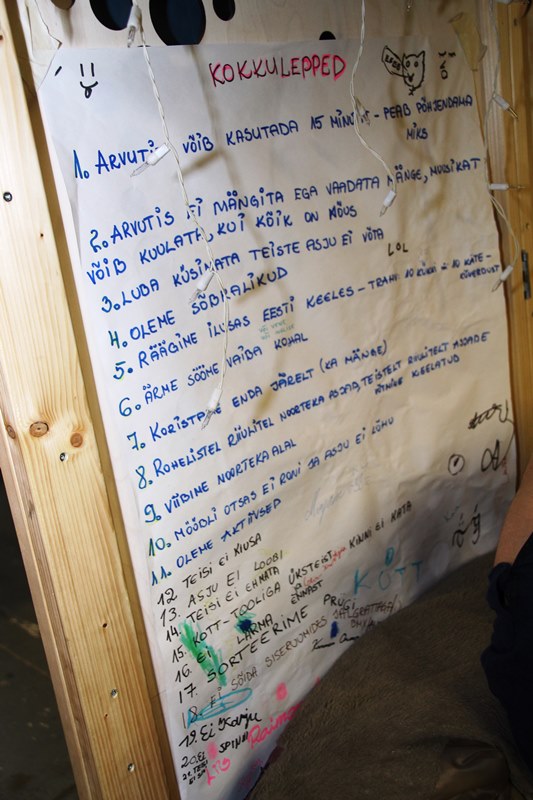 KOKKULEPPED
1. ARVUTIT VÕIB KASUTADA 15 MINUTIT - PEAB PÕHJENDAMA
MIKS
2. ARVUTIS EI MÄNGITA EGA VAADATA MÄNGE, MUUSIKAT
VÕIB KUULATA, KUI KÕIK ON NÕUS
3. LUBA KÜSIMATA TEISTE ASJU EI VÕTA
LOL
4. OLEME SÕBRALIKUD
5. RÄÄGIME ILUSAS EESTI KEELES - TRAHV 10 KÜKKI 10 KÄTE-
KÕVERDUST
6. ÄRME SÖÖME VAIBA KOHAL
7. KORISTAME ENDA JÄRELT (KA MÄNGE)
8. ROHELISTEL RIIULITEL NOORTEKA ASJAD, TEISTELT RIIULITELT ASJADE
VÕTMINE KEELATUD
9. VIIBIME NOORTEKA ALAL
10. MÖÖBLI OTSAS EI RONI JA ASJU EI LÕHU
11. OLEME AKTIIVSED
12. TEISI EI KIUSA
13. ASJU EI LOOBI
14. TEISI EI AHISTA
15. KOTT-TOOLIGA ÜKSTEIST KINNI EI KATA
16. EI LÄRMA
KÕTT
17. SORTEERIME PRÜGI
18. EI SÕIDA SISERUUMIDES
19. Ei Karju
20. EI SPINNI